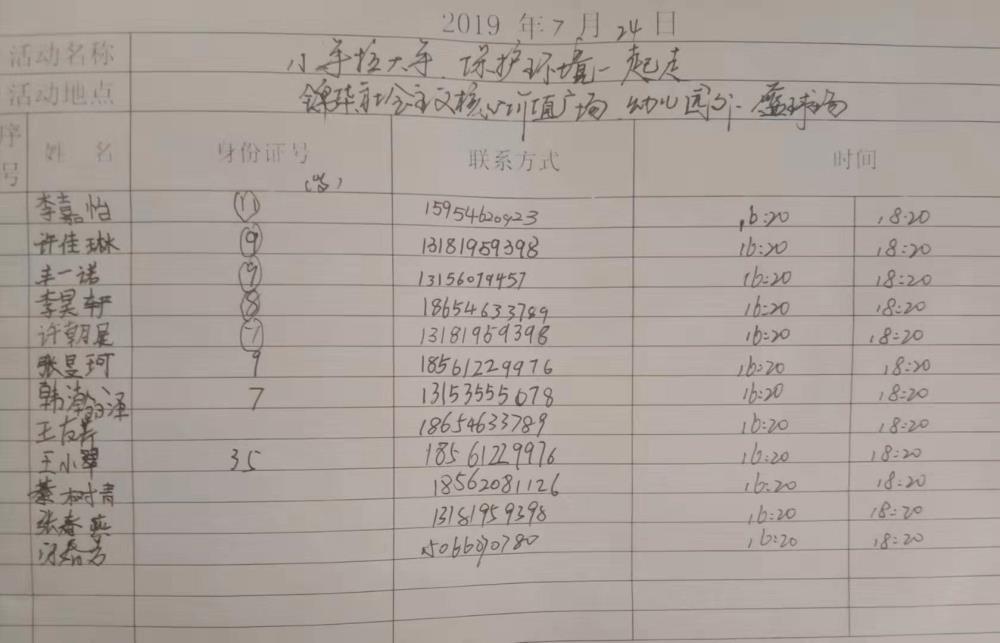 2019 年 7 月 24 日
活动名称 小手拉大手、保护环境一起走
活动地点 锦华社会主义核心价值广场、幼儿园外、篮球场
序号 姓 名 身份证号 (岁) 联系方式 时间
李嘉怡 11 15954620923 16:20 18:20
许佳琳 9 13181959398 16:20 18:20
丰一诺 9 13156079457 16:20 18:20
李昊轩 8 18654633789 16:20 18:20
许朝星 7 13181959398 16:20 18:20
张旻珂 9 18561229976 16:20 18:20
韩瀚泽 7 13153555678 16:20 18:20
王友芹 18654633789 16:20 18:20
王小翠 35 18561229976 16:20 18:20
綦树青 18562081126 16:20 18:20
张春燕 13181959398 16:20 18:20
15066090780 16:20 18:20